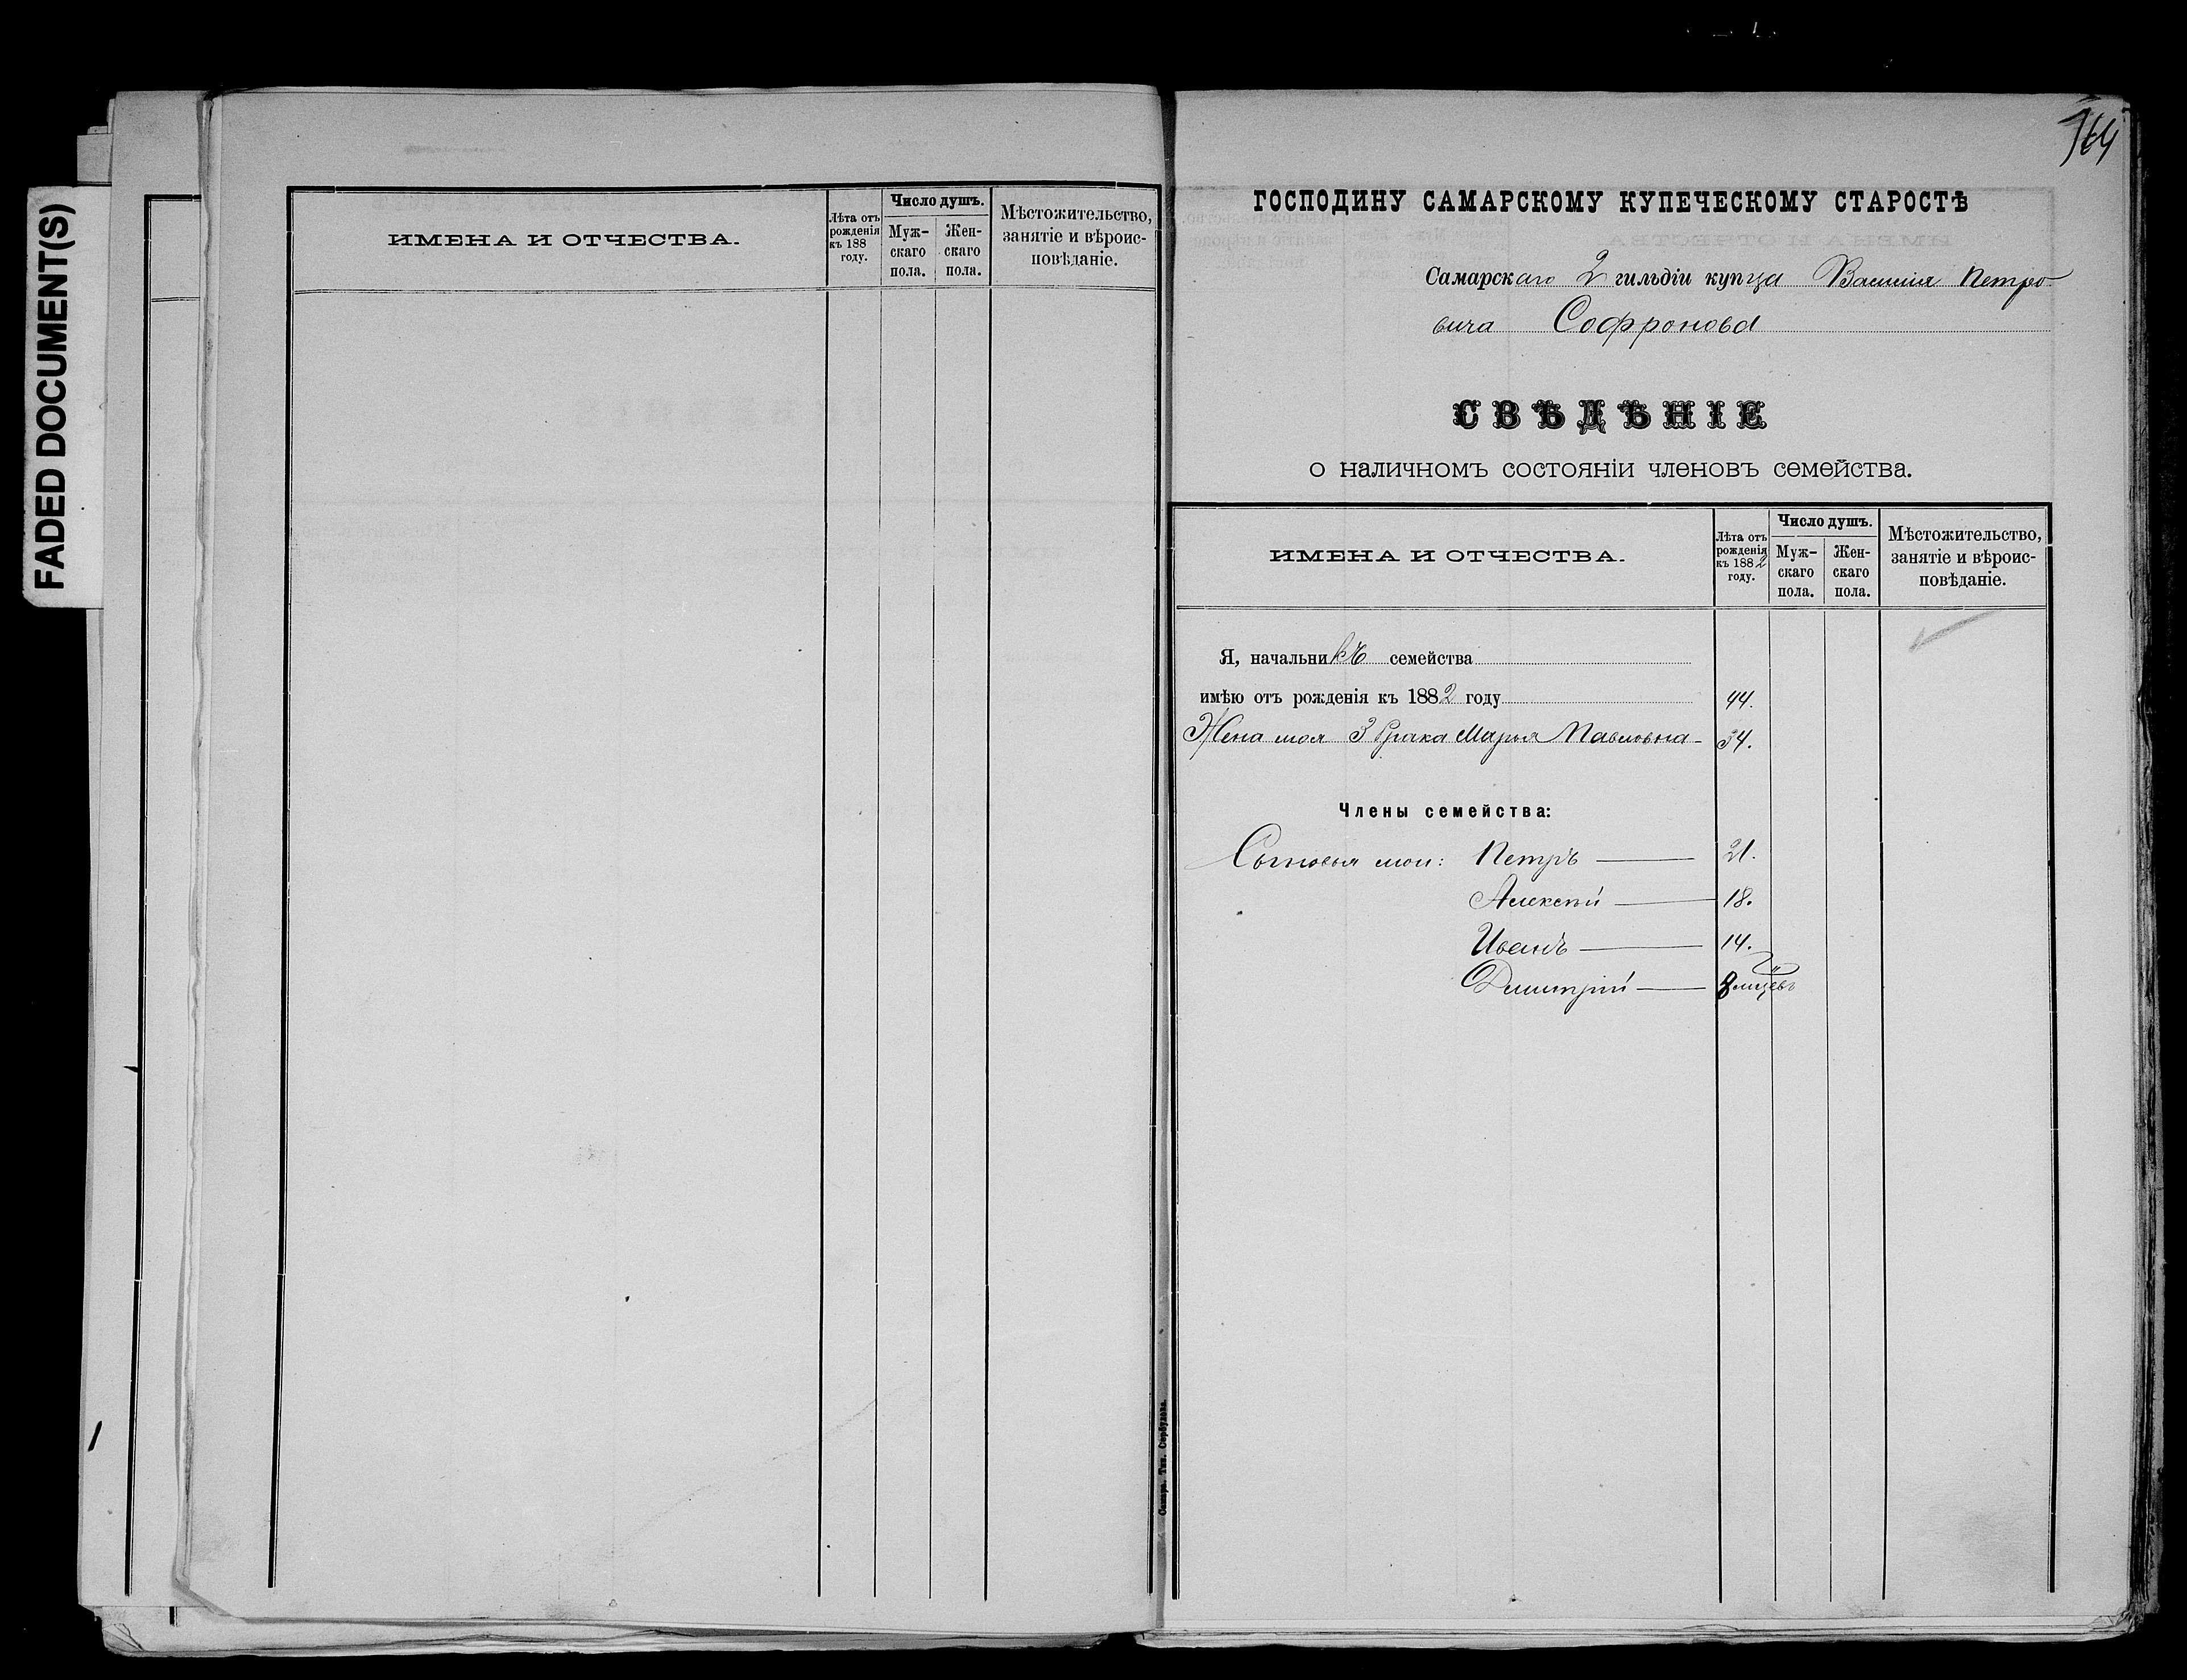 FADED DOCUMENT(S)
ИМЕНА И ОТЧЕСТВА.
Лѣта отъ
рожденія
къ 188
году.
Число душъ.
Муж-
скаго
пола.
Жен-
скаго
пола.
Мѣстожительство,
занятіе и вѣроис-
повѣданіе.
164
ГОСПОДИНУ САМАРСКОМУ КУПЕЧЕСКОМУ СТАРОСТѢ
Самарскаго 2 гильдіи купца Василія Петро-
вича Софронова
СВѢДѢНІЕ
о наличномъ состояніи членовъ семейства.
ИМЕНА И ОТЧЕСТВА.
Лѣта отъ
рожденія
къ 1882
году.
Число душъ.
Муж-
скаго
пола.
Жен-
скаго
пола.
Мѣстожительство,
занятіе и вѣроис-
повѣданіе.
Я, начальникъ семейства
имѣю отъ рожденія къ 1882 году 44.
Жена моя 3 брака Марья Павловна 34.
Члены семейства:
Сыновья мои: Петръ 21.
Алексѣй 18.
Иванъ 14.
Димитрій 8
Самара. Тип.